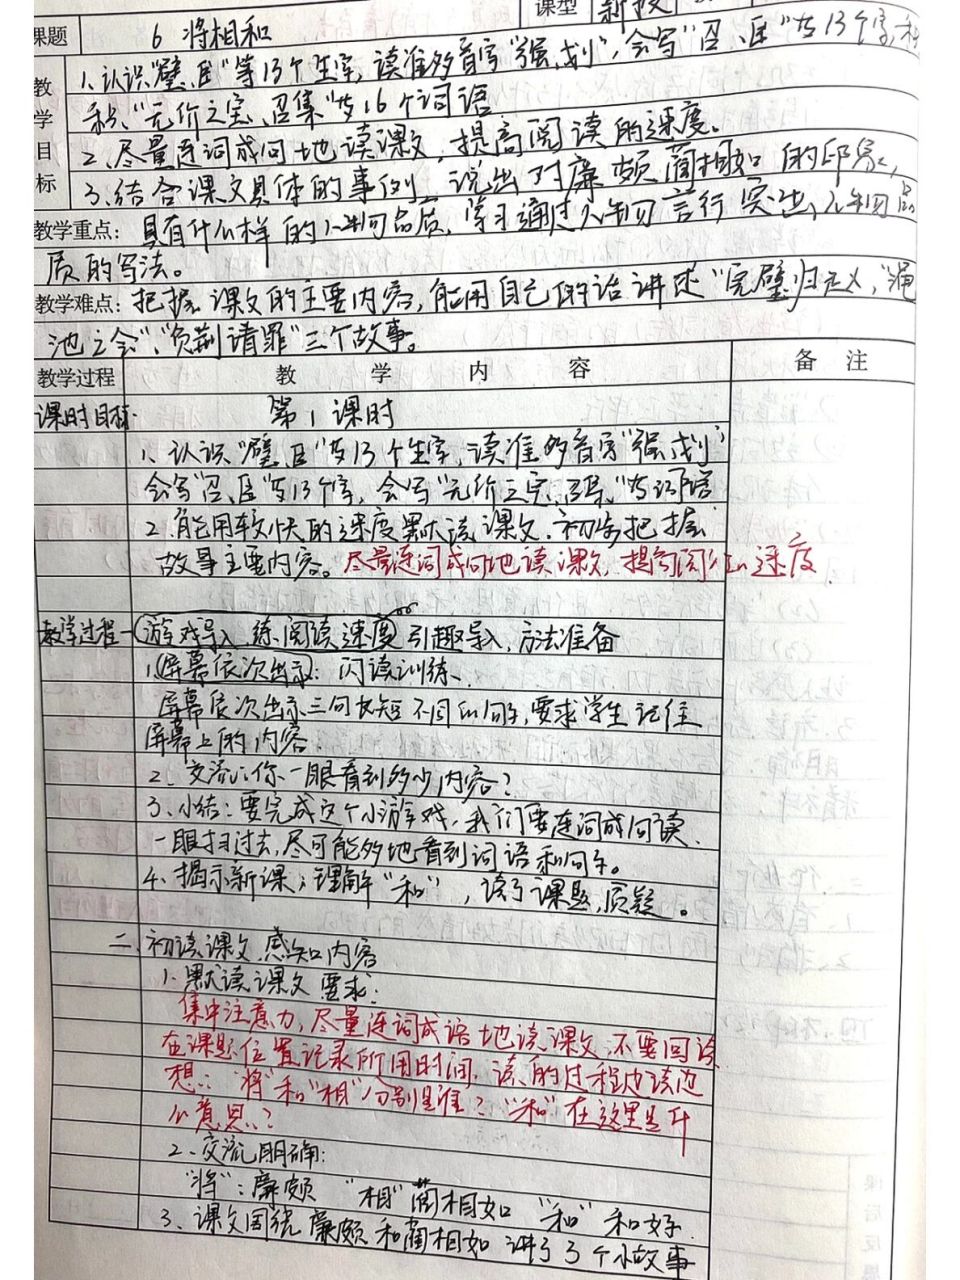 课型 新授
课题 6 将相和
教学目标
1、认识"璧、臣"等13个生字,读准多音字"强、划",会写"召、臣"等13个字,
积、"无价之宝、召集"等16个词语
2、尽量连词成句地读课文,提高阅读的速度。
3、结合课文具体的事例,说出对廉颇 蔺相如的印象,
教学重点: 具有什么样的人物品质,学习通过人物言行突出人物品
质的写法。
教学难点: 把握课文的主要内容,能用自己的话讲述"完璧归赵","渑
池之会"、"负荆请罪"三个故事。
教学过程 教学内容 备注
课时目标: 第1课时
1、认识"璧、臣"等13个生字,读准多音字"强、划"
会写"召、臣"等13个字,会写"无价之宝、召集"等词语
2、能用较快的速度默读课文,初步把握
故事主要内容。尽量连词成句地读课文,提高阅 速度
教学过程 一 游戏导入 练阅读速度 引趣导入,方法准备
1、屏幕依次出示:闪读训练、
屏幕依次出示三句长短不同的句子,要求学生记住
屏幕上的内容
2、交流:你一眼看到多少内容?
3、小结:要完成这个小游戏,我们要连词成句读、
一眼扫过去,尽可能多地看到词语和句子。
4、揭示新课;理解"和",读了课题,质疑。
二、初读课文,感知内容
1、默读课文 要求:
集中注意力,尽量连词成语地读课文,不要回读
在课题位置记录所用时间,读的过程边读边
想:"将"和"相"分别是谁?"和"在这里是什
么意思?
2、交流明确:
"将":廉颇 "相"蔺相如 "和"和好
3、课文围绕廉颇和蔺相如讲了3个小故事
课后反